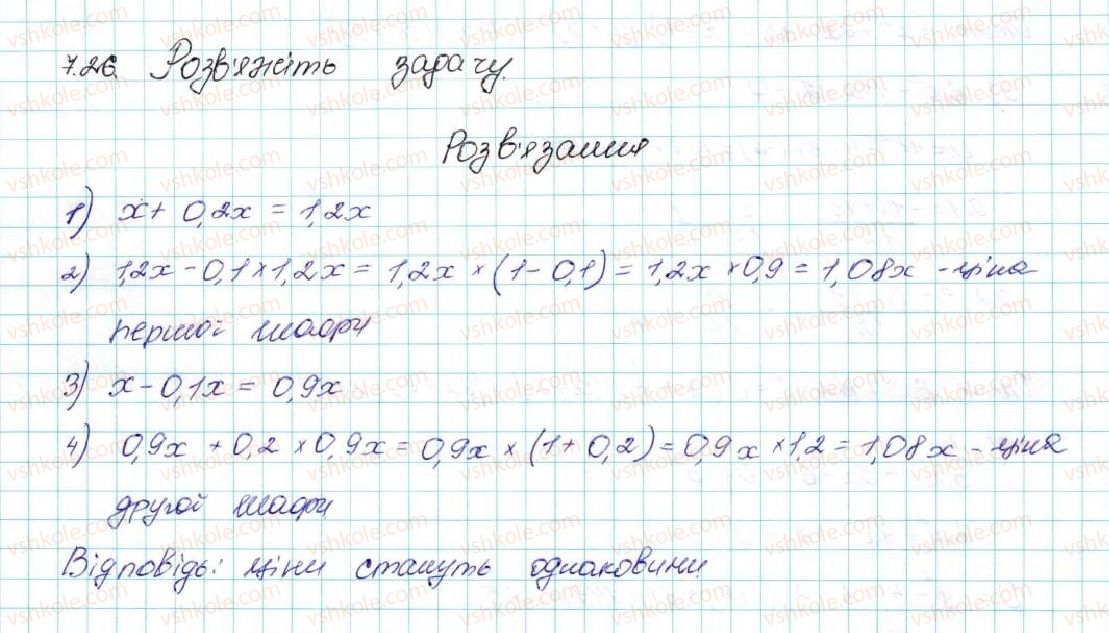 7.26. Розв'яжіть задачу.
Розв'язання
1) x + 0,2x = 1,2x
2) 1,2x - 0,1 × 1,2x = 1,2x × (1 - 0,1) = 1,2x × 0,9 = 1,08x - ціна
першої шафи
3) x - 0,1x = 0,9x
4) 0,9x + 0,2 × 0,9x = 0,9x × (1 + 0,2) = 0,9x × 1,2 = 1,08x - ціна
другої шафи
Відповідь: ціни стануть однаковими